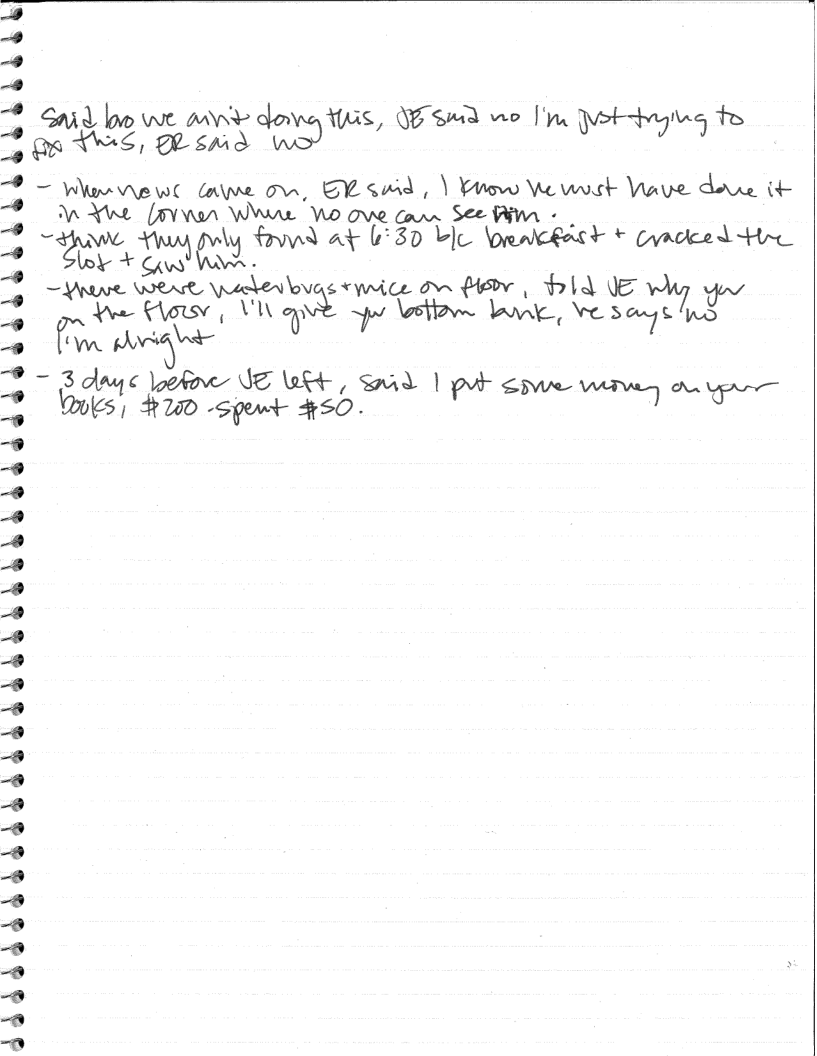 said bro we ain't doing this, JE said no I'm just trying to
fix this, ER said no
- when news came on, ER said, I know he must have done it
in the corner where no one can see him.
- think they only found at 6:30 b/c breakfast + cracked the
slot + saw him.
- there were waterbugs + mice on floor, told JE why you
on the floor, I'll give you bottom bunk, he says no
I'm alright
- 3 days before JE left, said I put some money on your
books, $200 - spent $50.